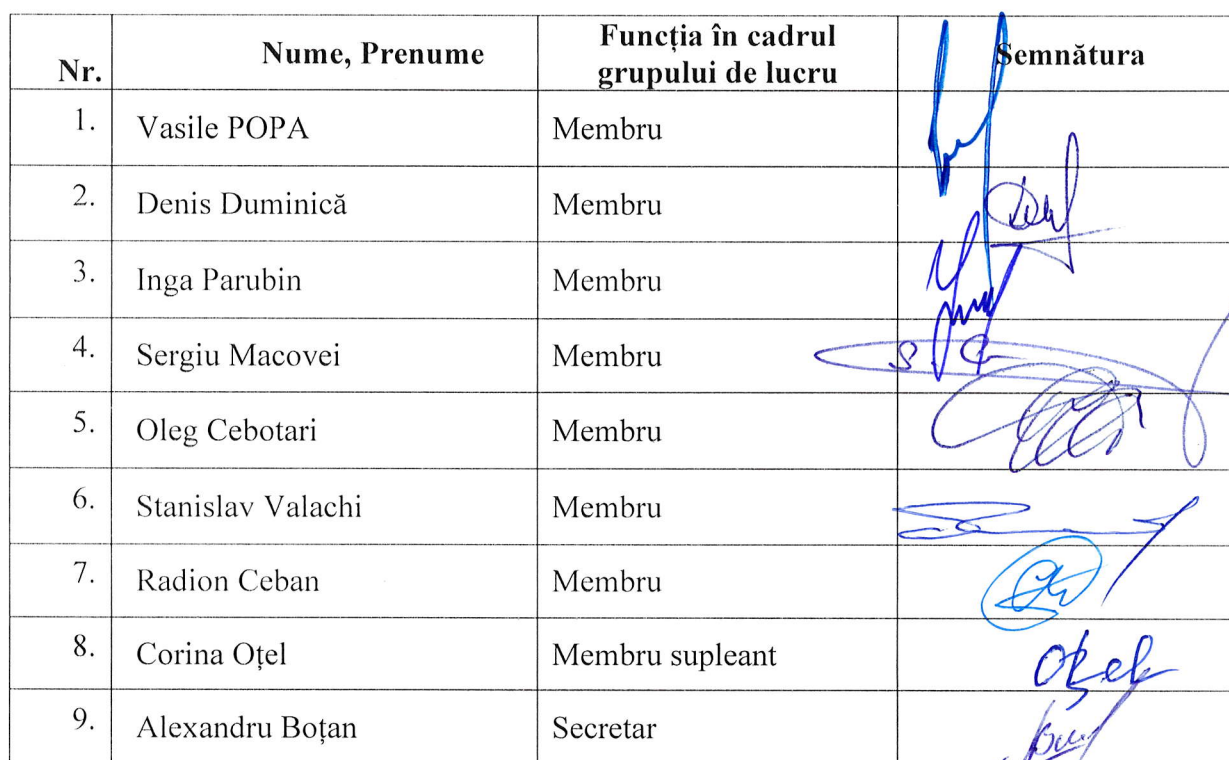 Nr. Nume, Prenume Funcția în cadrul grupului de lucru Semnătura
1. Vasile POPA Membru
2. Denis Duminică Membru
3. Inga Parubin Membru
4. Sergiu Macovei Membru
5. Oleg Cebotari Membru
6. Stanislav Valachi Membru
7. Radion Ceban Membru
8. Corina Oțel Membru supleant Oțel
9. Alexandru Boțan Secretar